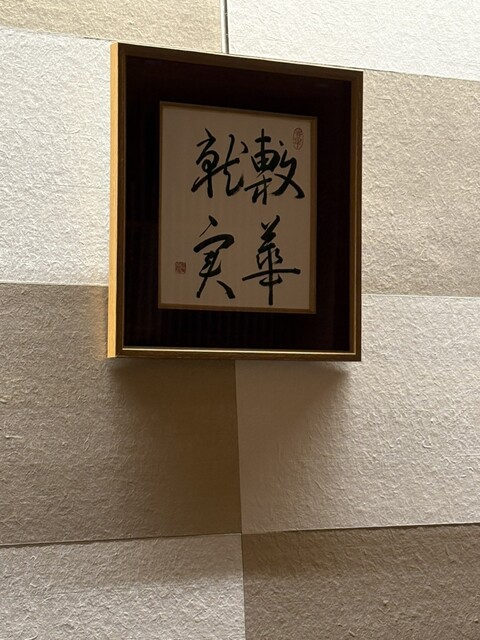 敷華
就実